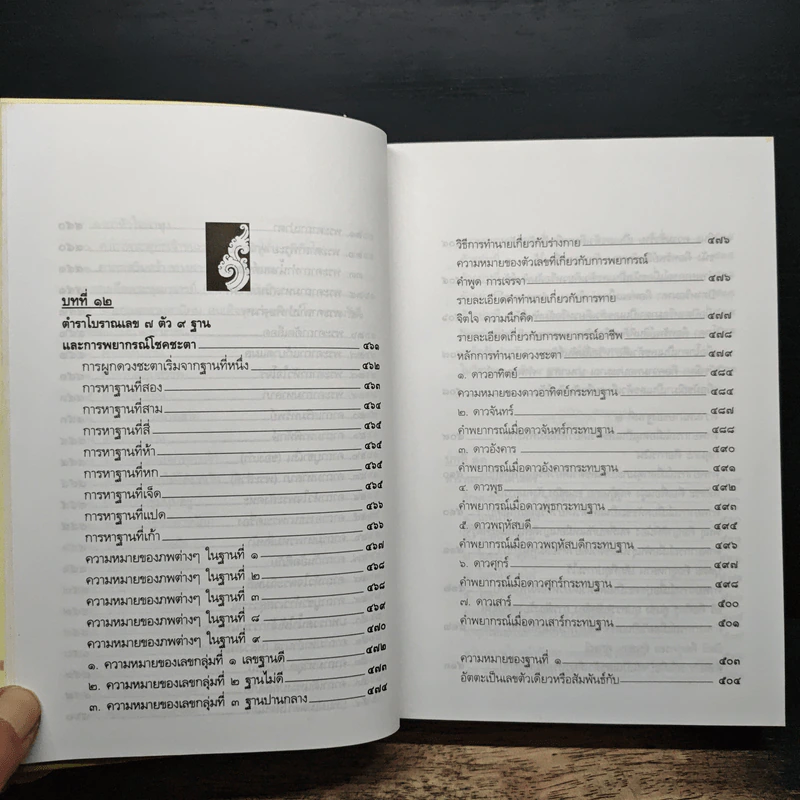 บทที่ ๑๒
ตำราโบราณเลข ๗ ตัว ๙ ฐาน
และการพยากรณ์โชคชะตา ๔๖๑
การผูกดวงชะตาเริ่มจากฐานที่หนึ่ง ๔๖๒
การหาฐานที่สอง ๔๖๓
การหาฐานที่สาม ๔๖๔
การหาฐานที่สี่ ๔๖๕
การหาฐานที่ห้า ๔๖๕
การหาฐานที่หก ๔๖๕
การหาฐานที่เจ็ด ๔๖๕
การหาฐานที่แปด ๔๖๖
การหาฐานที่เก้า ๔๖๖
ความหมายของภพต่างๆ ในฐานที่ ๑ ๔๖๗
ความหมายของภพต่างๆ ในฐานที่ ๒ ๔๖๘
ความหมายของภพต่างๆ ในฐานที่ ๓ ๔๖๘
ความหมายของภพต่างๆ ในฐานที่ ๘ ๔๖๙
ความหมายของภพต่างๆ ในฐานที่ ๙ ๔๗๐
๑. ความหมายของเลขกลุ่มที่ ๑ เลขฐานดี ๔๗๒
๒. ความหมายของเลขกลุ่มที่ ๒ ฐานไม่ดี ๔๗๓
๓. ความหมายของเลขกลุ่มที่ ๓ ฐานปานกลาง ๔๗๔
วิธีการทำนายเกี่ยวกับร่างกาย ๔๗๖
ความหมายของตัวเลขที่เกี่ยวกับการพยากรณ์
คำพูด การเจรจา ๔๗๖
รายละเอียดคำทำนายเกี่ยวกับการทาย
จิตใจ ความนึกคิด ๔๗๗
รายละเอียดเกี่ยวกับการพยากรณ์อาชีพ ๔๗๘
หลักการทำนายดวงชะตา ๔๗๙
๑. ดาวอาทิตย์ ๔๘๕
ความหมายของดาวอาทิตย์กระทบฐาน ๔๘๕
๒. ดาวจันทร์ ๔๘๗
คำพยากรณ์เมื่อดาวจันทร์กระทบฐาน ๔๘๘
๓. ดาวอังคาร ๔๙๐
คำพยากรณ์เมื่อดาวอังคารกระทบฐาน ๔๙๑
๔. ดาวพุธ ๔๙๒
คำพยากรณ์เมื่อดาวพุธกระทบฐาน ๔๙๓
๕. ดาวพฤหัสบดี ๔๙๕
คำพยากรณ์เมื่อดาวพฤหัสบดีกระทบฐาน ๔๙๖
๖. ดาวศุกร์ ๔๙๗
คำพยากรณ์เมื่อดาวศุกร์กระทบฐาน ๔๙๘
๗. ดาวเสาร์ ๕๐๐
คำพยากรณ์เมื่อดาวเสาร์กระทบฐาน ๕๐๑
ความหมายของฐานที่ ๑ ๕๐๓
อัตตะเป็นเลขตัวเดียวหรือสัมพันธ์กับ ๕๐๔